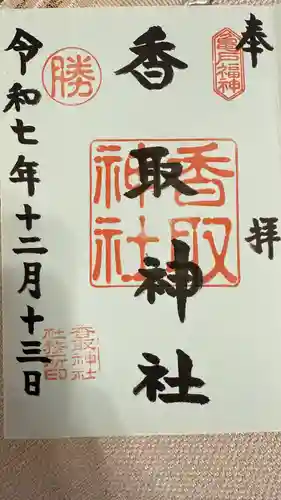 奉拝
亀戸福神
香取神社
香取神社
勝
香取神社社務所印
令和七年十二月十三日